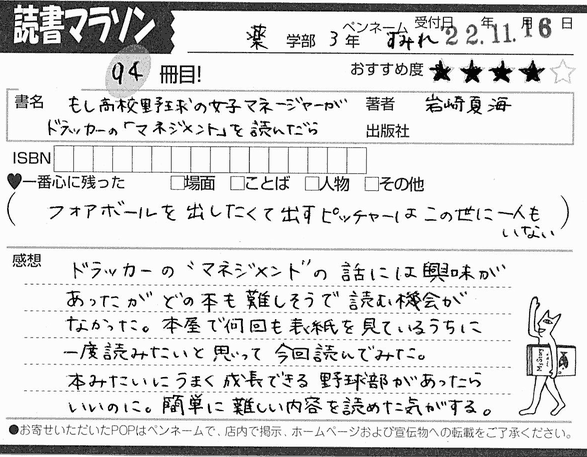 読書マラソン
薬 学部 3 年 ペンネーム すみれ 受付日 22年 11月 16日
94 冊目! おすすめ度 ★★★★☆
書名 もし高校野球の女子マネージャーが 著者 岩崎夏海
ドラッカーの「マネジメント」を読んだら 出版社
ISBN
♥一番心に残った □場面 □ことば □人物 □その他
(フォアボールを出したくて出すピッチャーはこの世に一人も
いない)
感想
ドラッカーの“マネジメント”の話には興味が
あったがどの本も難しそうで読む機会が
なかった。本屋で何回も表紙を見ているうちに
一度読みたいと思って今回読んでみた。
本みたいにうまく成長できる野球部があったら
いいのに。簡単に難しい内容を読めた気がする。
●お寄せいただいたPOPはペンネームで、店内で掲示、ホームページおよび宣伝物への転載をご了承ください。